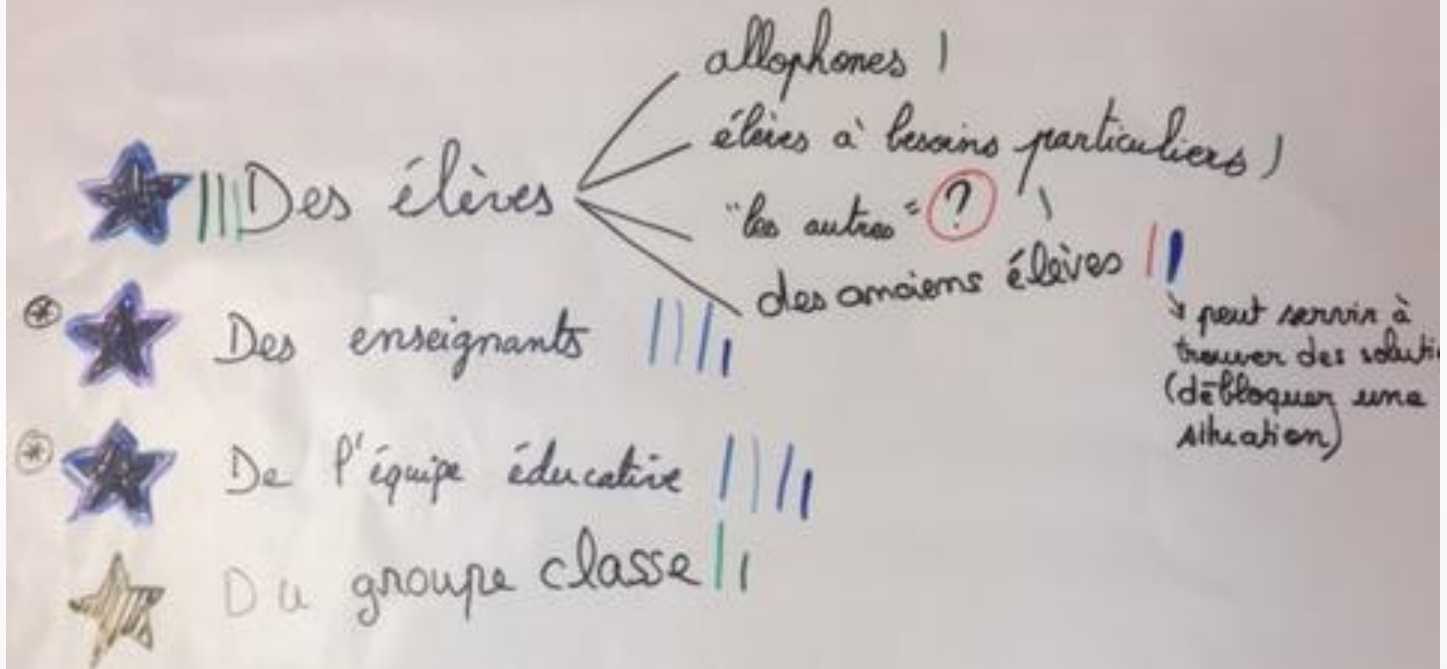 allophones
élèves à besoins particuliers
Des élèves
"les autres" ?
des anciens élèves
peut servir à
trouver des soluti
(débloquer une
situation)
Des enseignants
De l'équipe éducative
Du groupe classe